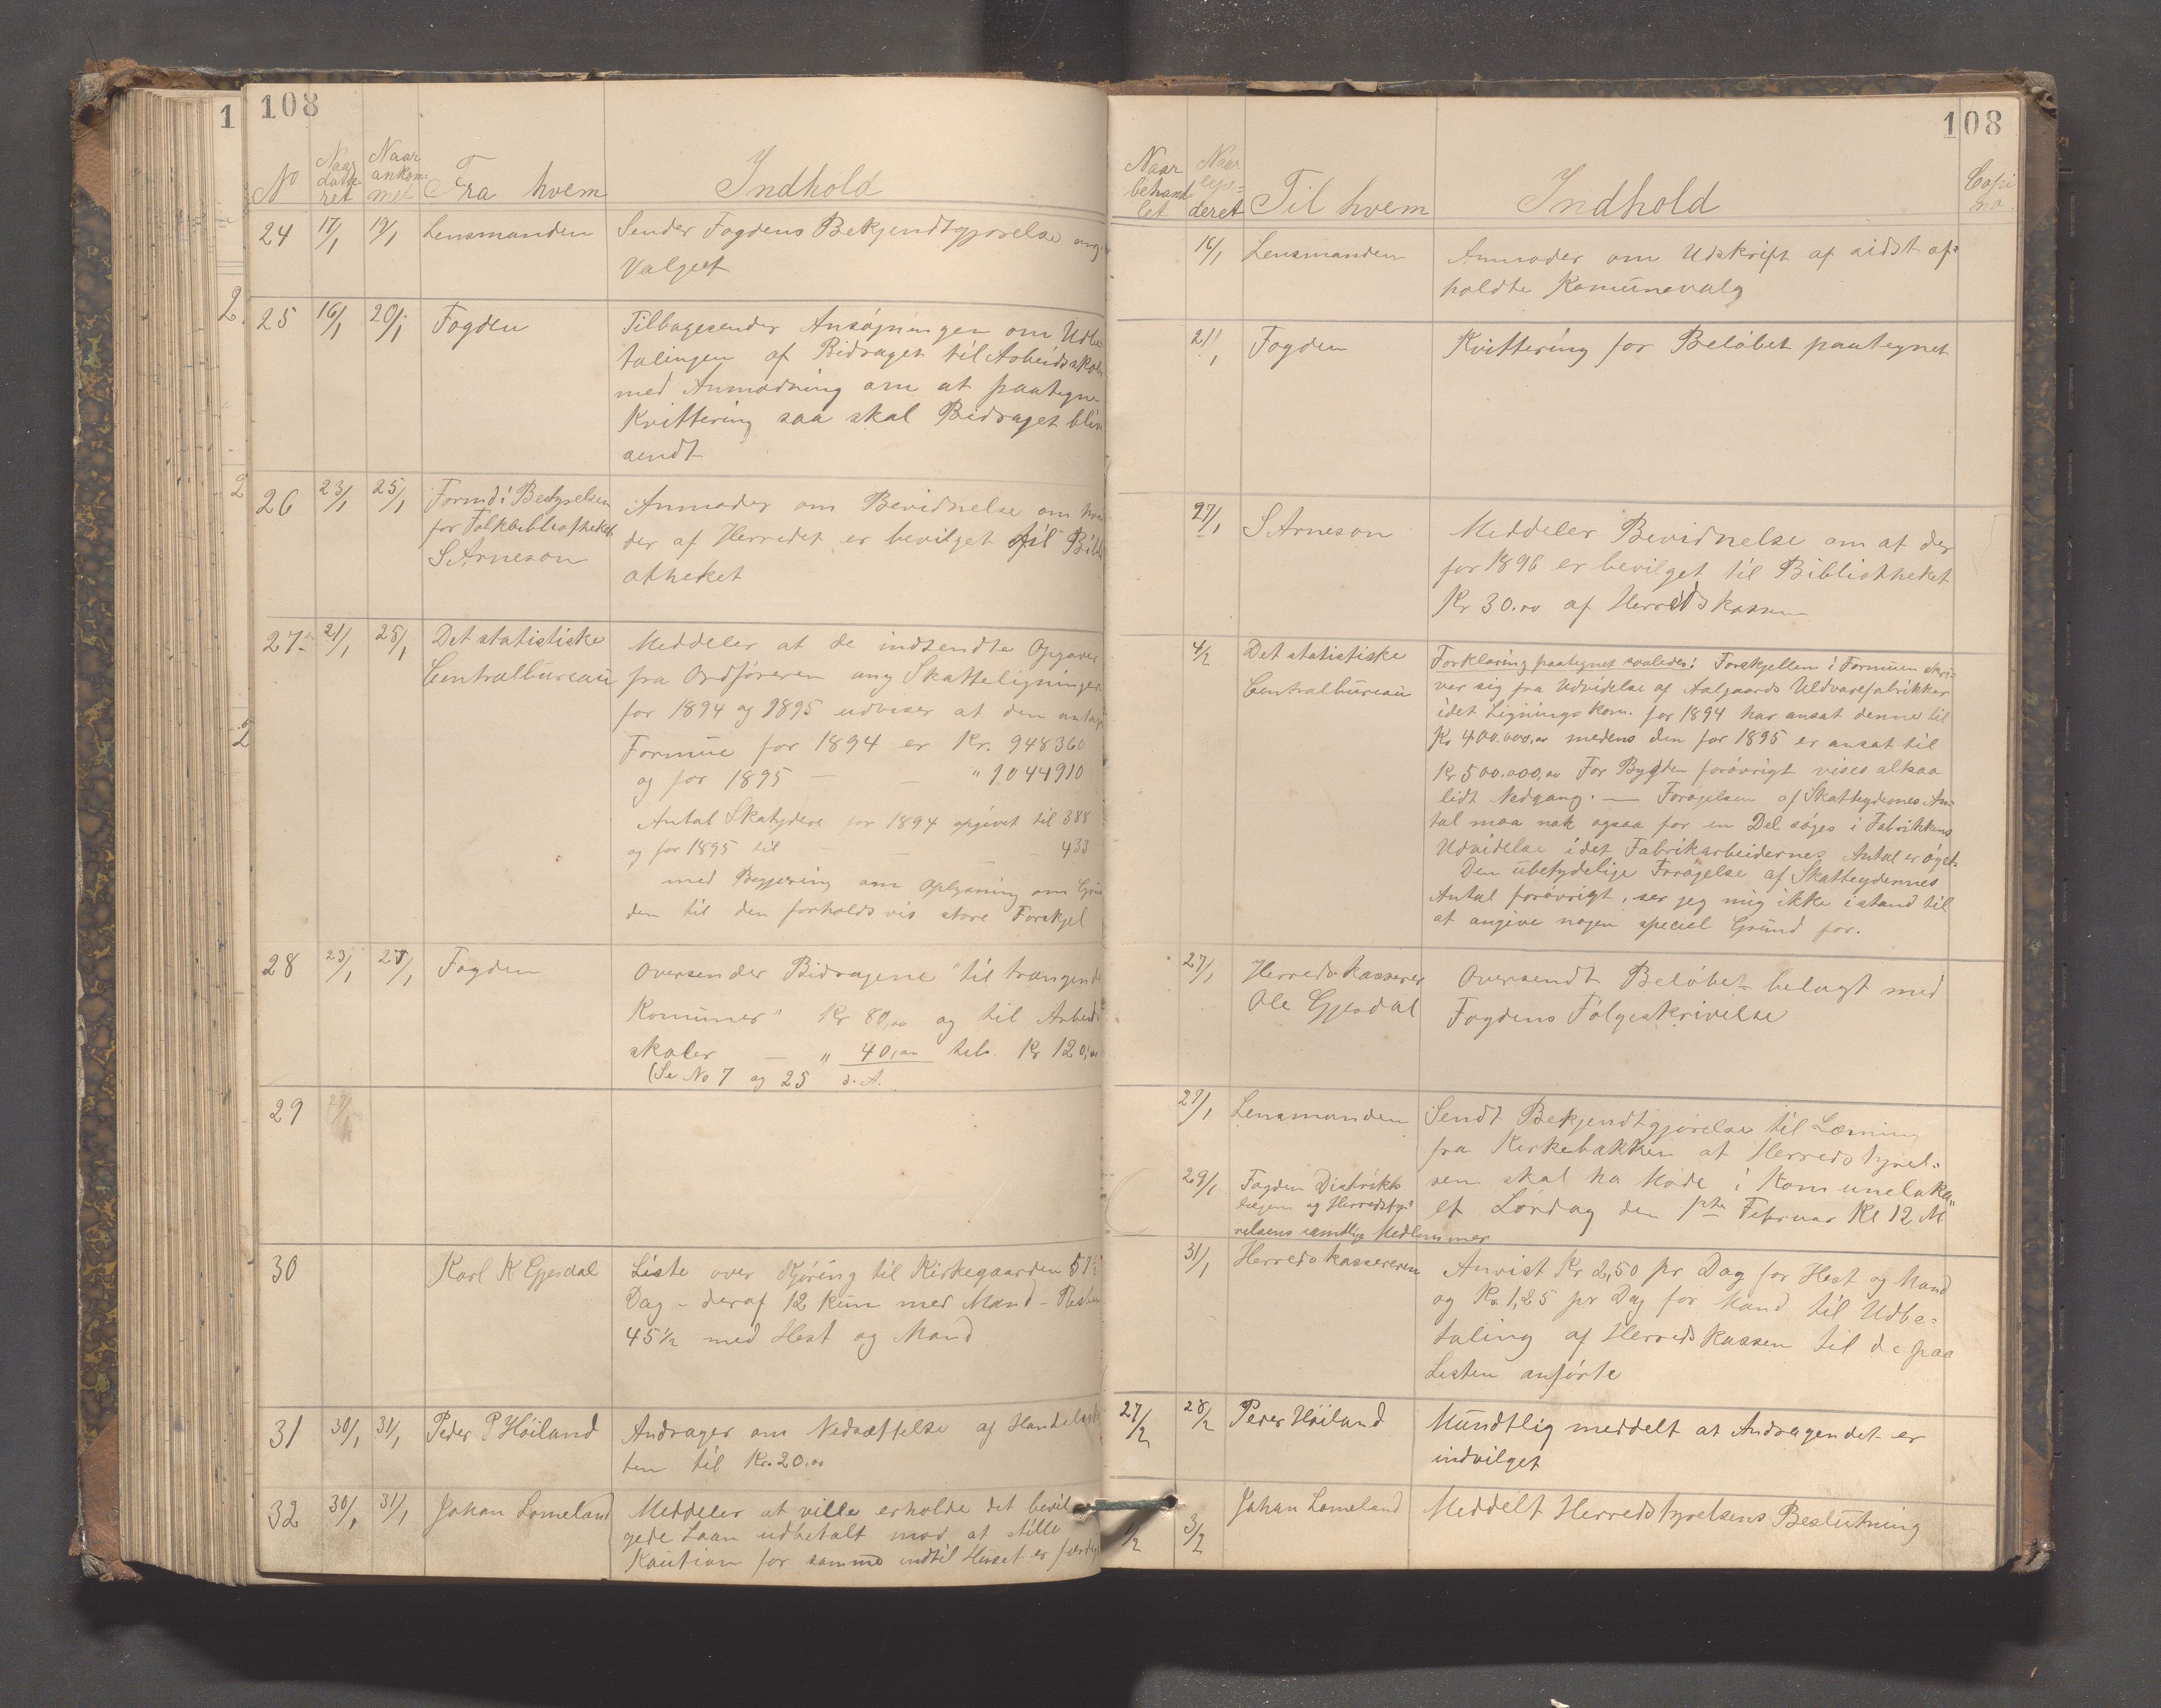 1
108
No
Naar
datte-
ret
Naar
ankom-
met
Fra hvem
Indhold
24 17/1 19/1 Lensmanden Sender Fogdens Bekjendtgjørelse ang.
Valget
25 16/1 20/1 Fogden Tilbagesender Ansøgningen om Udbe
talingen af Bidraget til Arbeidsskole
med Anmodning om at paategne
Kvittering saa skal Bidraget bliv
sendt
26 23/1 25/1 Formd i Bestyrelsen
for Folkbibliotheket
S Arneson
Anmoder om Bevidnelse om hva
der af Herredet er bevilget til Bibli
otheket
27 21/1 25/1 Det statistiske
Centralbureau
Meddeler at de indsendte Opgaver
fra Ordføreren ang Skatteligningen
for 1894 og 1895 udviser at den antagn
Formue for 1894 er Kr. 948360
og for 1895 — — " 1044910
Antal Skatydere for 1894 opgivet til 388
og for 1895 til — — — 433
med Begjæring om Oplysning om Grun
den til den forholdsvis store Forskjel
28 23/1 25/1 Fogden Oversender Bidragene "til trængende
Komuner" Kr 80,00 og til Arbeids
skoler — " 40,00 tils. Kr 120,00
(Se No 7 og 25 d. A.
29
30 Karl K Gjesdal Liste over Kjøring til Kirkegaarden 57½
Dag - deraf 12 kun med Mand - Resten
45½ med Hest og Mand
31 30/1 31/1 Peder P Høiland Andrager om Nedsættelse af Handelsskat
ten til Kr. 20.00
32 30/1 31/1 Johan Lomeland Meddeler at ville erholde det bevil
gede Laan udbetalt mod at stille
Kaution for samme indtil Huset er færdig
108
Naar
behand
let
Naar
expe-
deret
Til hvem
Indhold
Copi
no.
16/1 Lensmanden Anmoder om Udskrift af sidst af-
holdte Komunevalg
21/1 Fogden Kvittering for Beløbet paategnet
27/1 S Arneson Meddeler Bevidnelse om at der
for 1896 er bevilget til Bibliotheket
Kr 30.00 af Herredskassen
4/2 Det statistiske
Centralbureau
Forklaring paategnet saaledes: Forskjellen i Formuen skri-
ver sig fra Udvidelse af Aalgaards Uldvarefabrikker
idet Ligningskom. for 1894 har ansat denne til
Kr 400.000,00 medens den for 1895 er ansat til
Kr 500.000,00 For Bygden forøvrigt vises altsaa
lidt Nedgang. — Forøgelsen af Skatteydernes An-
tal maa nok ogsaa for en Del søges i Fabrikkens
Udvidelse idet Fabrikarbeidernes Antal er øget.
Den ubetydelige Forøgelse af Skatteydernes
Antal forøvrigt, ser jeg mig ikke istand til
at angive nogen speciel Grund for.
27/1 Herredskasserer
Ole Gjesdal
Oversendt Beløbet belagt med
Fogdens Følgeskrivelse
27/1 Lensmanden Sendt Bekjendtgjørelse til Læsning
fra Kirkebakken at Herredstyrel-
29/1 Fogden Distrikts
lægen og Herredsty-
relsens samtlige Medlemmer
sen skal ha Møde i Komuneloka-
et Lørdag den 1ste Februar Kl 12 M
31/1 Herredskassereren Anvist Kr 2,50 pr Dag for Hest og Mand
og Kr 1,25 pr Dag for Mand til Udbe-
taling af Herredskassen til de paa
Listen anførte
27/2 28/2 Peder Høiland Mundtlig meddelt at Andragendet er
indvilget
1/2 3/2 Johan Lomeland Meddelt Herredstyrelsens Beslutning